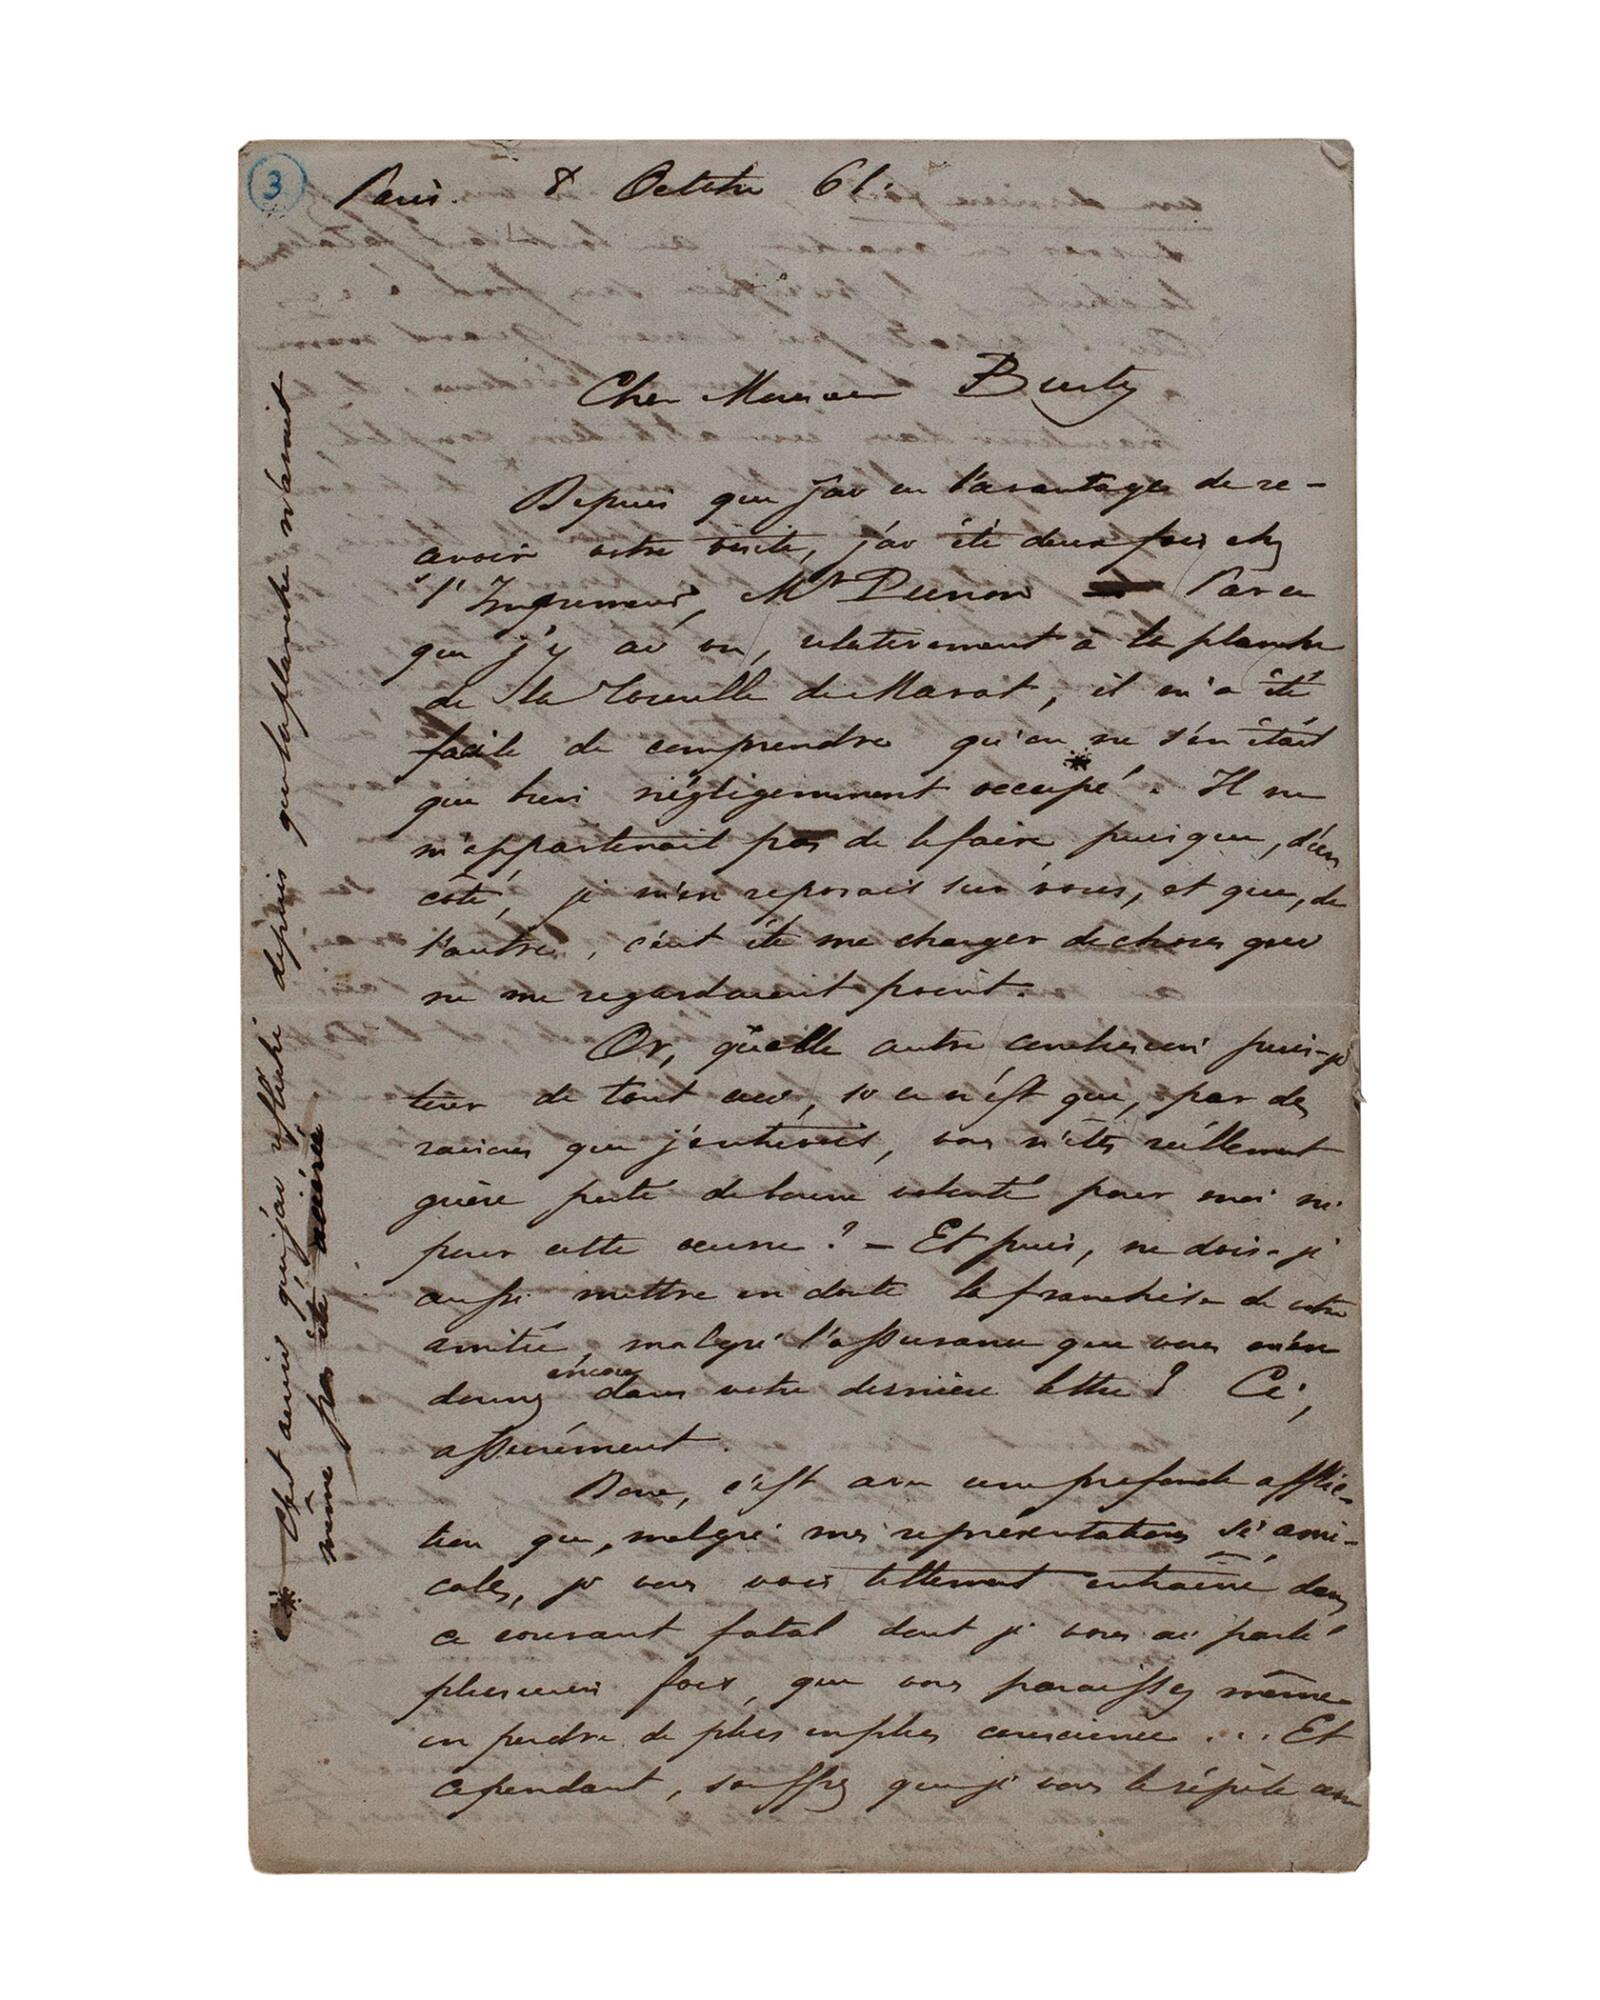 3
Paris. 8 Octobre 61.
Cher Monsieur Burty
Depuis que j'ai eu l'avantage de re-
avoir votre visite, j'ai été deux fois chez
l'Imprimeur, Mr Pierron Par ce
que j'y ai vu, relativement à la planche
de la Tourelle de Marat, il m'a été
facile de comprendre qu'on ne s'en était
que bien négligemment occupé *. Il ne
m'appartenait pas de le faire puisque, d'un
côté, je m'en reposais sur vous, et que, de
l'autre, c'eut été me charger de choses qui
ne me regardaient point.
Or, quelle autre conclusion puis-je
tirer de tout ceci, si ce n'est que, par des
raisons que j'entrevois, vous n'êtes réellement
guère porté de bonne volonté pour moi ni
pour cette oeuvre ? — Et puis, ne dois-je
aussi mettre en doute la franchise de votre
amitié, malgré l'assurance que vous m'en
donnez encore dans votre dernière lettre ?
assurément.
Donc, c'est avec une profonde afflic-
tion que, malgré mes représentations si ami-
cales, je vous vois tellement entrainé dans
ce courant fatal dont je vous ai parlé
plusieurs fois, que vous paraissez même
en perdre de plus en plus conscience ... Et
cependant, souffrez que je vous le répète une
* C'est ainsi que j'ai réfléchi depuis que la planche n'avait
même pas été aciérée